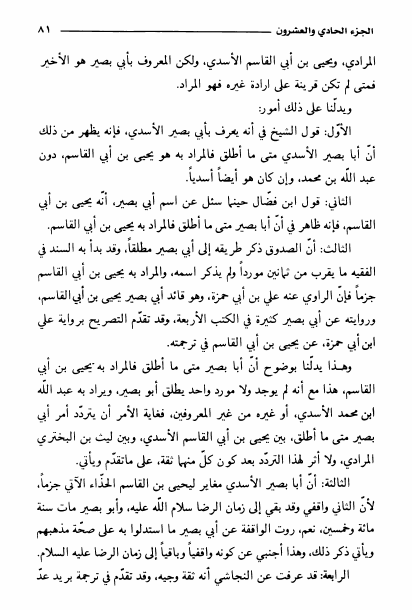 الجزء الحادي والعشرون ٨١
المرادي، ويحيى بن أبي القاسم الأسدي، ولكن المعروف بأبي بصير هو الأخير
فمتى لم تكن قرينة على ارادة غيره فهو المراد.
ويدلّنا على ذلك أمور:
الأوّل: قول الشيخ في أنه يعرف بأبي بصير الأسدي، فإنه يظهر من ذلك
أنّ أبا بصير الأسدي متى ما أطلق فالمراد به هو يحيى بن أبي القاسم، دون
عبد اللّه بن محمد، وإن كان هو أيضاً أسدياً.
الثاني: قول ابن فضّال حينما سئل عن اسم أبي بصير، أنّه يحيى بن أبي
القاسم، فإنه ظاهر في أنّ أبا بصير متى ما أطلق فالمراد به يحيى بن أبي القاسم.
الثالث: أنّ الصدوق ذكر طريقه إلى أبي بصير مطلقاً، وقد بدأ به السند في
الفقيه ما يقرب من ثمانين مورداً ولم يذكر اسمه، والمراد به يحيى بن أبي القاسم
جزماً فإنّ الراوي عنه علي بن أبي حمزة، وهو قائد أبي بصير يحيى بن أبي القاسم،
وروايته عن أبي بصير كثيرة في الكتب الأربعة، وقد تقدّم التصريح برواية علي
ابن أبي حمزة، عن يحيى بن أبي القاسم في ترجمته.
وهذا يدلّنا بوضوح أنّ أبا بصير متى ما أطلق فالمراد به يحيى بن أبي
القاسم، هذا مع أنه لم يوجد ولا مورد واحد يطلق أبو بصير، ويراد به عبد اللّه
ابن محمد الأسدي، أو غيره من غير المعروفين، فغاية الأمر أن يتردّد أمر أبي
بصير متى ما أطلق، بين يحيى بن أبي القاسم الأسدي، وبين ليث بن البختري
المرادي، ولا أثر لهذا التردّد بعد كون كلّ منهما ثقة، على ماتقدّم ويأتي.
الثالثة: أنّ أبا بصير الأسدي مغاير ليحيى بن القاسم الحذّاء الآتي جزماً،
لأنّ الثاني واقفي وقد بقي إلى زمان الرضا سلام اللّه عليه، وأبو بصير مات سنة
مائة وخمسين، نعم، روت الواقفة عن أبي بصير ما استدلوا به على صحّة مذهبهم
ويأتي ذكر ذلك، وهذا أجنبي عن كونه واقفياً وباقياً إلى زمان الرضا عليه السلام.
الرابعة: قد عرفت عن النجاشي أنه ثقة وجيه، وقد تقدّم في ترجمة بريد عدّ